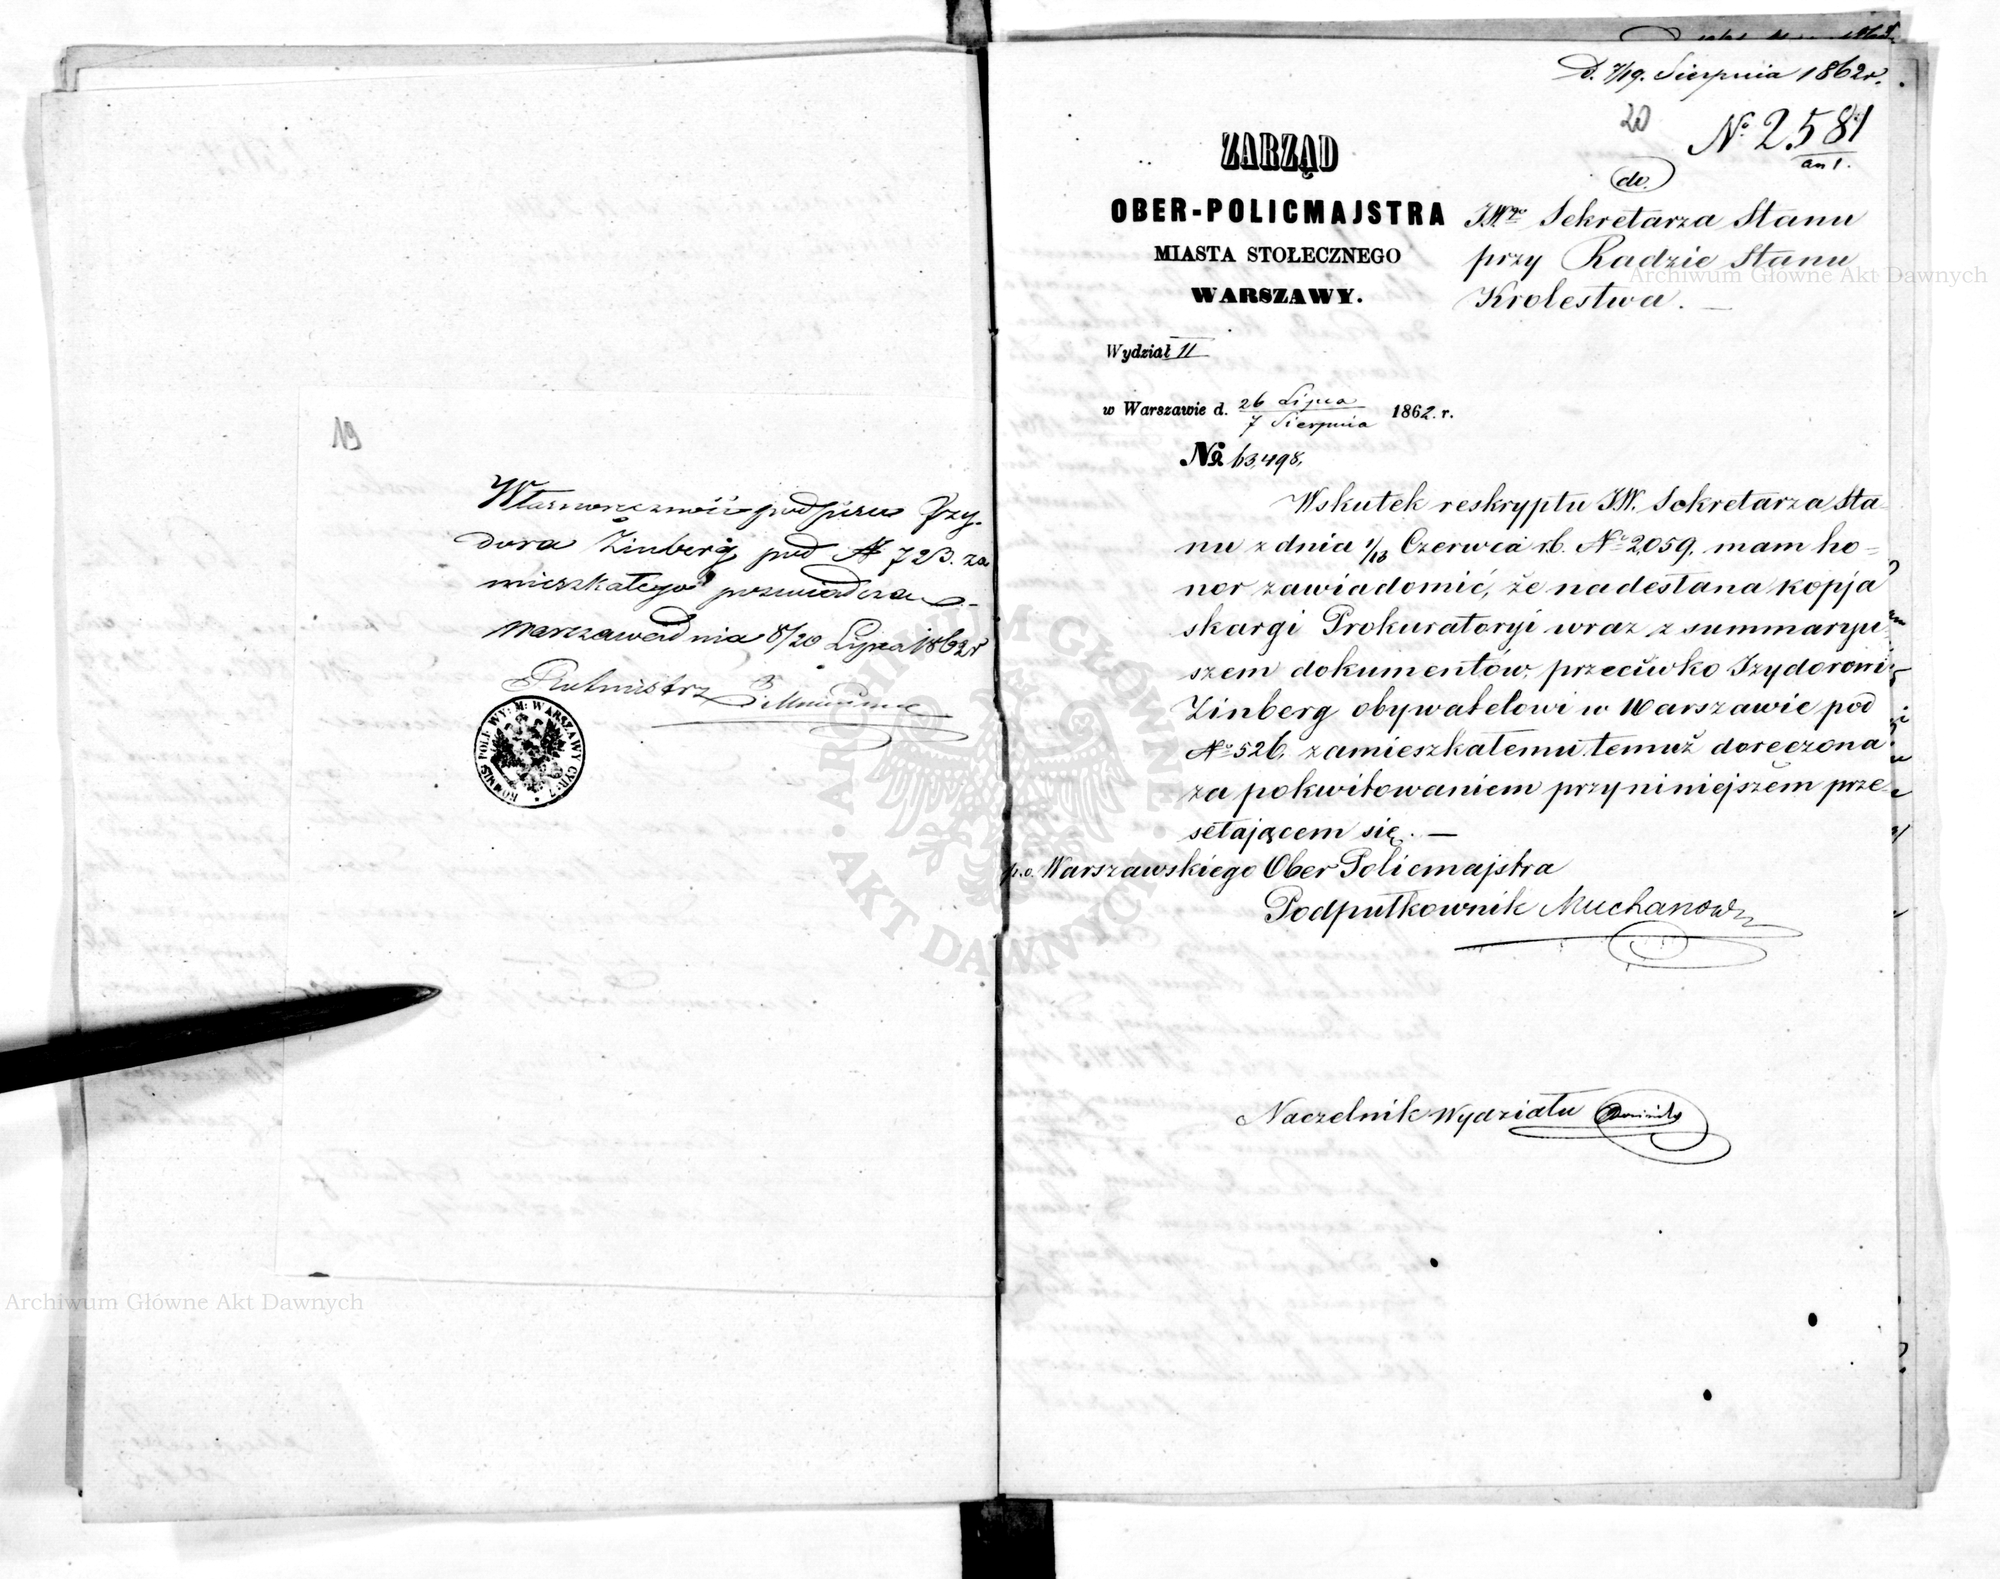 19
Własnoręczność podpisu Izy-
dora Zinberg pod № 723. za
mieszkałego poświadcza
Warszawa dnia 8/20 Lipca 1862 r
Rotmistrz
KOMMIS POLI: WY: M: WARSZAWY CYR: 7.
D. 7/19. Sierpnia 1862 r.
20
№ 2.581
ant.
ZARZĄD
OBER-POLICMAJSTRA
MIASTA STOŁECZNEGO
WARSZAWY.
do.
JWgo Sekretarza Stanu
przy Radzie Stanu
Krolestwa. —
Wydział II
w Warszawie d. 26 Lipca / 7 Sierpnia 1862. r.
No. 63,498.
Wskutek reskryptu J.W. Sekretarza Sta-
nu z dnia 1/13 Czerwca r.b. № 2059. mam ho=
nor zawiadomić, że nadesłana kopja
skargi Prokuratoryi wraz z summaryu-
szem dokumentów, przeciwko Izydorowi
Zinberg obywatelowi w Warszawie pod
№ 526. zamieszkałemu temuż doręczona
za pokwitowaniem przy niniejszém prze-
sełającem się. —
p.o. Warszawskiego Ober Policmajstra
Podpułkownik Muchanow
Naczelnik Wydziału
Archiwum Główne Akt Dawnych
Archiwum Główne Akt Dawnych
ARCHIWUM GŁÓWNE · AKT DAWNYCH ·